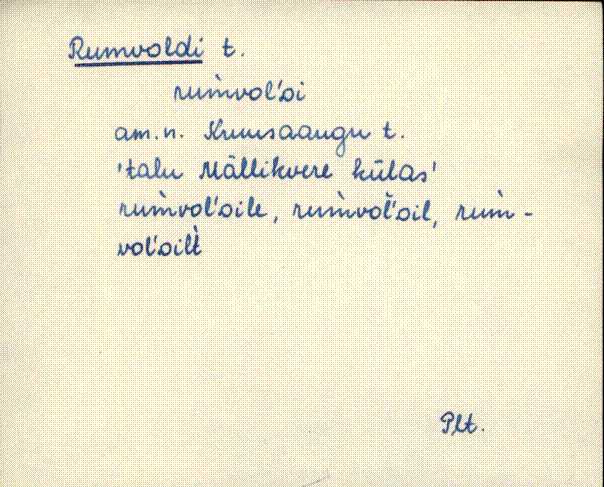 Rumvoldi t.
rum̀vol'ᴅi
am.n. Kruusaaugu t.
'talu Mällikvere külas'
rum̀vol'ᴅile, rum̀vol'ᴅil, rum̀-
vol'ᴅilt̀
Plt.